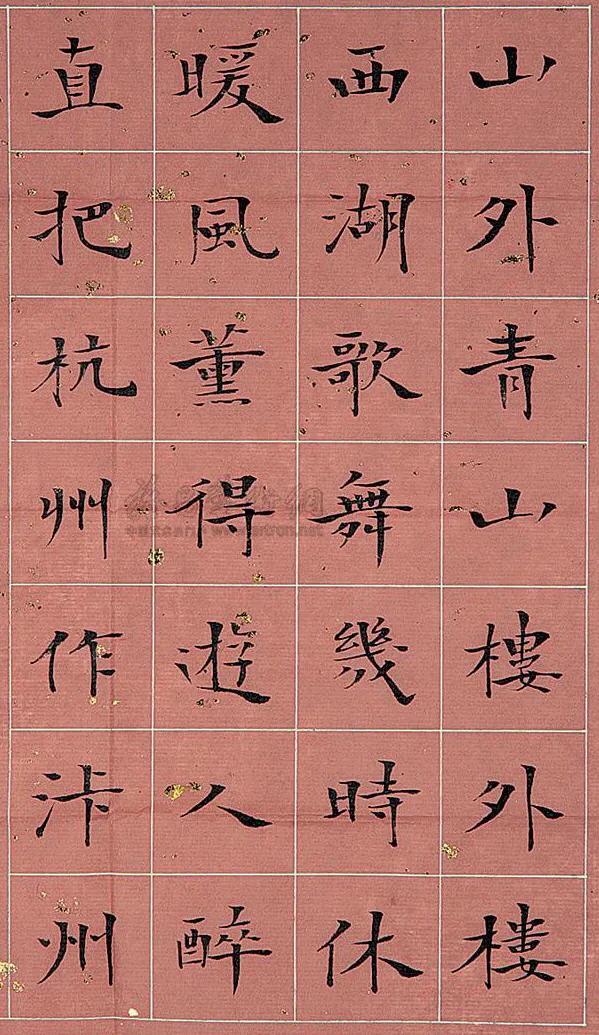 山外青山樓外樓
西湖歌舞幾時休
暖風薰得遊人醉
直把杭州作汴州